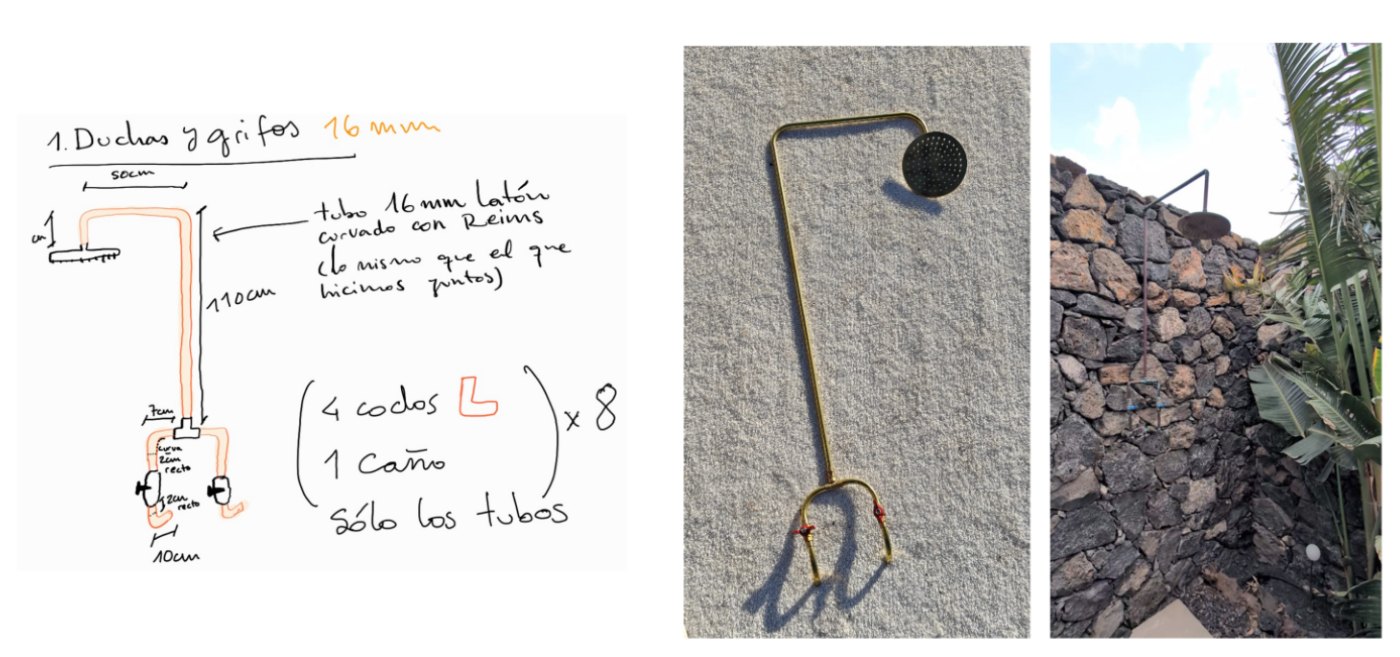 1. Duchas y grifos 16 mm
50cm
cm
tubo 16 mm latón
curvado con Reims
(lo mismo que el que
hicimos juntos)
110cm
7cm
curva
2cm
recto
2cm
recto
10cm
4 codos
1 caño
x 8
sólo los tubos